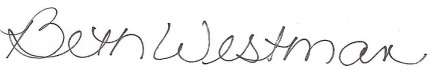 Beth Westman